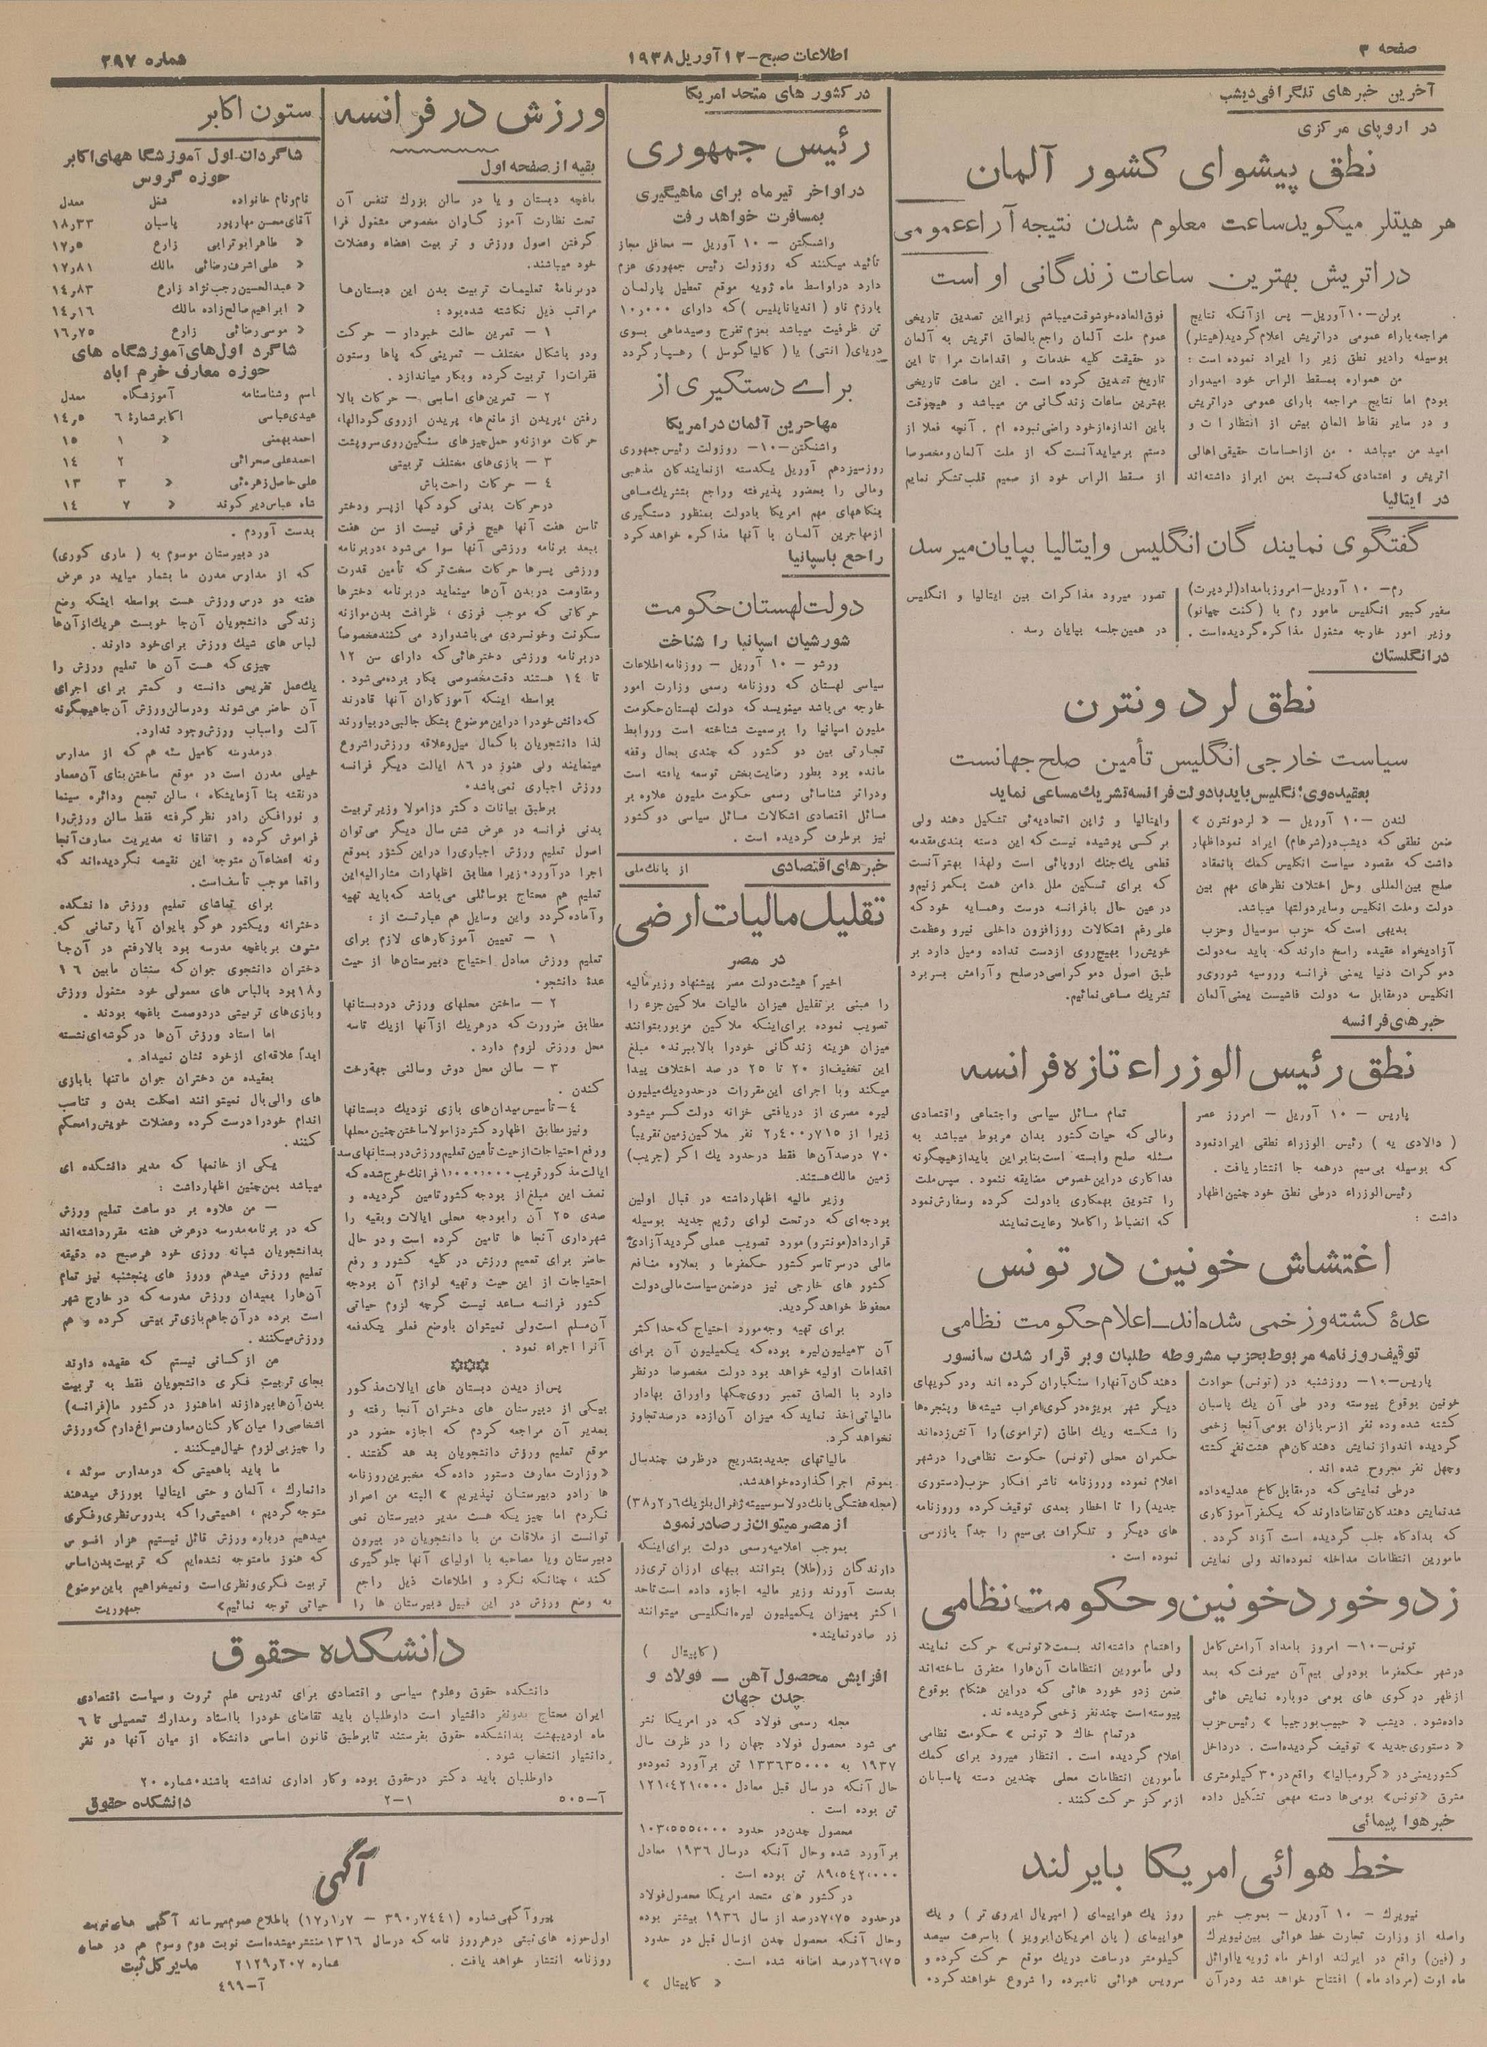 صفحه ۳
اطلاعات صبح–۱۲آوریل۱۹۳۸
شماره ۲۹۷
آخرین خبرهای تلگرافی‌دیشب
در اروپای مرکزی
نطق پیشوای کشور آلمان
هر هیتلر میگوید ساعت معلوم شدن نتیجه آراءعمومی
دراتریش بهترین ساعات زندگانی او است
برلن–۱۰آوریل– پس از آنکه نتایج
مراجعه باراء عمومی دراتریش اعلام گردید(هیتلر)
بوسیله رادیو نطق زیر را ایراد نموده است :
من همواره بمسقط الراس خود امیدوار
بودم اما نتایج مراجعه بارای عمومی دراتریش
و در سایر نقاط المان بیش از انتظار ات و
امید من میباشد ۰ من ازاحساسات حقیقی‌اهالی
اتریش و اعتمادی که نسبت بمن ابراز داشته‌اند
فوق‌العاده‌خوشوقت‌میباشم زیرا این تصدیق تاریخی
عموم ملت آلمان راجع بالحاق اتریش به آلمان
در حقیقت کلیه خدمات و اقدامات مرا تا این
تاریخ تصدیق کرده است . این ساعت تاریخی
بهترین ساعات زندگانی من میباشد و هیچوقت
باین اندازه‌از خود راضی نبوده ام . آنچه فعلا از
دستم برمیایدآنست که از ملت آلمان ومخصوصا
از مسقط الراس خود از صمیم قلب تشکر نمایم
در ایتالیا
گفتگوی نمایند گان انگلیس وایتالیا بپایان میرسد
رم– ۱۰ آوریل–امروز بامداد(لردپرت)
سفیر کبیر انگلیس مامور رم با (کنت چیانو)
وزیر امور خارجه مشغول مذاکره گردیده است.
تصور میرود مذاکرات بین ایتالیا و انگلیس
در همین جلسه بپایان رسد .
درانگلستان
نطق لرد ونترن
سیاست خارجی انگلیس تأمین صلح جهانست
بعقیده وی انگلیس باید بادولت فرانسه تشریک مساعی نماید
لندن –۱۰ آوریل – « لردونترن »
ضمن نطقی که دیشب در(شرهام) ایراد نمود اظهار
داشت که مقصود سیاست انگلیس کمک بانعقاد
صلح بین‌المللی وحل اختلاف نظرهای مهم بین
دولت وملت انگلیس وسایر دولتها میباشد.
بدیهی است که حزب سوسیال وحزب
آزادیخواه عقیده راسخ دارند که: باید سه دولت
دمو کرات دنیا یعنی فرانسه وروسیه شوروی‌و
انگلیس درمقابل سه دولت فاشیست یعنی آلمان
وایتالیا و ژاپن اتحادیه‌ئی تشکیل دهند ولی
بر کسی پوشیده نیست که این دسته بندی مقدمه
قطعی یک‌جنگ اروپائی است ولهذا بهتر آنست
که برای تسکین ملل دامن همت بکمر زنیم و
در عین حال بافرانسه دوست وهمسایه خود که
علی‌رغم اشکالات روزافزون داخلی نیرو وعظمت
خویش‌را بهیچ‌روی ازدست نداده ومیل دارد بر
طبق اصول دمو کراسی درصلح وآرامش بسر برد
تشریک مساعی نمائیم.
خبرهای‌فرانسه
نطق رئیس الوزراء تازه فرانسه
پاریس – ۱۰ آوریل – امروز عصر
( دالادی یه ) رئیس الوزراء نطقی ایراد نمود
که بوسیله بی‌سیم درهمه جا انتشار یافت .
رئیس الوزراء درطی نطق خود چنین اظهار
داشت :
تمام مسائل سیاسی واجتماعی واقتصادی
ومالی که حیات کشور بدان مربوط میباشد به
مسئله صلح وابسته است بنابراین باید از هیچگونه
فداکاری در این خصوص مضایقه ننمود . سپس ملت
را تشویق بهمکاری بادولت کرده وسفارش نمود
که انضباط را کاملا رعایت نمایند
اغتشاش خونین در تونس
عدۀ کشته وزخمی شده‌اند–اعلام حکومت نظامی
توقیف روزنامه مربوط بحزب مشروطه طلبان وبر قرار شدن سانسور
پاریس–۱۰– روزشنبه در (تونس) حوادث
خونین بوقوع پیوسته ودر طی آن یک پاسبان
کشته شده وده نفر از سربازان بومی آنجا زخمی
گردیده اندو از نمایش دهندکان هم هشت‌نفر کشته
وچهل نفر مجروح شده اند .
درطی نمایشی که درمقابل کاخ عدلیه داده
شد نمایش دهندکان تقاضا دارند که یکنفر آموز کاری
که بدادکاه جلب گردیده است آزاد گردد .
مامورین انتظامات مداخله نموده‌اند ولی نمایش
دهندگان آنهارا سنگباران کرده اند ودر کویهای
دیگر شهر بویژه‌در کوی‌اعراب شیشه‌ها وپنجره‌ها
را شکسته ویک اطاق (تراموی) را آتش‌زده‌اند
حکمران محلی (تونس) حکومت نظامی‌را درشهر
اعلام نموده وروزنامه ناشر افکار حزب(دستوری
جدید) را تا اخطار بعدی توقیف کرده وروزنامه
های دیگر و تلگراف بی‌سیم را جداً بازرسی
نموده است ۰
زد و خورد خونین و حکومت نظامی
تونس–۱۰– امروز بامداد آرامش کامل
درشهر حکمفرما بودولی بیم‌آن میرفت که بعد
ازظهر درکوی های بومی دوباره نمایش هائی
داده‌شود . دیشب « حبیب بورجیبا » رئیس حزب
« دستوری‌جدید » توقیف گردیده‌است . درداخل
کشور یعنی در «گرومبالیا» واقع در ۳۰ کیلومتری
مشرق «تونس» بومی‌ها دسته مهمی تشکیل داده
واهتمام داشته‌اند بسمت«تونس» حرکت نمایند
ولی مأمورین انتظامات آن‌هارا متفرق ساخته‌اند
ضمن زدو خورد هائی که دراین هنکام بوقوع
پیوسته است چندنفر زخمی گردیده ند .
درتمام خاک « تونس » حکومت نظامی
اعلام گردیده است . انتظار میرود برای کمک
مأمورین انتظامات محلی چندین دسته پاسبانان
از مرکز حرکت کنند .
خبر هوا پیمائی
خط هوائی امریکا بایرلند
نیویرک – ۱۰ آوریل – بموجب خبر
واصله از وزارت تجارت خط هوائی بین‌نیویرک
و (فین) واقع در ایرلند اواخر ماه ژویه یااوائل
ماه اوت (مرداد ماه ) افتتاح خواهد شد ودر آن
روز یک هواپیمای ( امپریال ایروی تر ) و یک
هواپیمای ( پان امریکان‌ایرویز ) باسرعت سیصد
کیلومتر در ساعت دریک موقع حرکت کرده و
سرویس هوائی نامبرده را شروع خواهند کرد۰
درکشور های متحد امریکا
رئیس جمهوری
دراواخر تیر ماه برای ماهیگیری
بمسافرت خواهد رفت
واشنگتن – ۱۰ آوریل – محافل مجاز
تأئید میکنند که روزولت رئیس جمهوری عزم
دارد دراواسط ماه ژویه موقع تعطیل پارلمان
بارزم ناو ( اندیاناپلیس )که دارای ۱۰ر۰۰۰
تن ظرفیت میباشد بعزم تفرج وصیدماهی بسوی
دریای( انتی ) یا ( کالپاگوس ) رهسپار گردد
برای دستگیری از
مهاجرین آلمان درامریکا
واشنگتن–۱۰– روزولت رئیس جمهوری
روزسیزدهم آوریل یکدسته ازنمایندکان مذهبی
ومالی را بحضور پذیرفته وراجع بتشریک مساعی
بنکاههای مهم امریکا بادولت بمنظور دستگیری
ازمهاجرین آلمان با آنها مذاکره خواهد کرد
راجع باسپانیا
دولت لهستان حکومت
شورشیان اسپانیا را شناخت
ورشو – ۱۰ آوریل – روزنامه اطلاعات
سیاسی لهستان که روزنامه رسمی وزارت امور
خارجه می باشد مینویسد که دولت لهستان حکومت
ملیون اسپانیا را برسمیت شناخته است وروابط
تجارتی بین دو کشور که چندی بحال وقفه
مانده بود بطور رضایت‌بخش توسعه یافته است
ودراثر شناسائی رسمی حکومت ملیون علاوه بر
مسائل اقتصادی اشکالات مسائل سیاسی دو کشور
نیز برطرف گردیده است .
خبرهای‌اقتصادی
از بانک‌ملی
تقلیل مالیات ارضی
در مصر
اخیراً هیئت‌دولت مصر پیشنهاد وزیر مالیه
را مبنی بر تقلیل میزان مالیات ملاکین جزء را
تصویب نموده برای‌اینکه ملاکین مزبور بتوانند
میزان هزینه زندگانی خودرا بالا ببرند۰ مبلغ
این تخفیف‌از ۲۰ تا ۲۵ در صد اختلاف پیدا
میکند وبا اجرای این مقررات درحدود یک میلیون
لیره مصری از دریافتی خزانه دولت کسر میشود
زیرا از ۲٫۴۰۰٫۷۱۵ نفر ملاکین زمین تقریباً
۷۰ درصد آن‌ها فقط درحدود یک اکر (جریب)
زمین مالک هستند.
وزیر مالیه اظهارداشته در قبال اولین
بودجه‌ای که درتحت لوای رژیم جدید بوسیله
قرارداد(مونترو) مورد تصویب عملی گردید آزادی
مالی درسرتاسر کشور حکمفرما و بعلاوه منافع
کشور های خارجی نیز درضمن سیاست مالی دولت
محفوظ خواهد گردید.
برای تهیه وجه مورد احتیاج که حداکثر
آن ۳میلیون‌لیره بوده که یکمیلیون آن برای
اقدامات اولیه خواهد بود دولت مخصوصا درنظر
دارد با الصاق تمبر روی چکها واوراق بهادار
مالیاتی‌اخذ نماید که میزان آن‌ازده درصدتجاوز
نخواهد کرد.
مالیاتهای جدید بتدریج درظرف چندسال
بموقع اجرا گذارده خواهدشد.
(مجله هفتگی بانک دولا سوسیته ژنرال بلژیک ۲۶ر۲ر۳۸)
ازمصر میتوان زر صادر نمود
بموجب اعلامیه رسمی دولت برای‌اینکه
دارندگان زر(طلا) بتوانند ببهای ارزان تری‌زر
بدست آورند وزیر مالیه اجازه داده است تا حد
اکثر بمیزان یکمیلیون لیره انگلیسی میتوانند
زر صادر نمایند۰
( کاپیتال )
افزایش محصول آهن – فولاد و
چدن جهان
مجله رسمی فولاد که در امریکا نشر
می شود محصول فولاد جهان را در ظرف سال
۱۹۳۷ به ۱۳۳۶۳۵۰۰۰ تن برآورد نموده‌و
حال آنکه در سال قبل معادل ۱۲۱،۴۲۱،۰۰۰
تن بوده است .
محصول چدن‌در حدود ۱۰۳،۵۵۵،۰۰۰
برآورد شده وحال آنکه درسال ۱۹۳۶ معادل
۸۹،۵۴۲،۰۰۰ تن بوده است .
در کشور های متحد امریکا محصول فولاد
درحدود ۷،۷۵درصد از سال ۱۹۳۶ بیشتر بوده
وحال آنکه محصول چدن ازسال قبل در حدود
۲۶،۷۵درصد اضافه شده است .
« کاپیتال »
ورزش در فرانسه
بقیه از صفحه اول
باغچه دبستان و یا در سالن بزرک تنفس آن
تحت نظارت آموز گاران مخصوص مشغول فرا
گرفتن اصول ورزش و تر بیت اعضاء وعضلات
خود میباشند.
دربرنامۀ تعلیمات تربیت بدن این دبستان‌ها
مراتب ذیل نگاشته شده‌بود :
۱ – تمرین حالت خبردار – حرکت
ودو باشکال مختلف – تمرینی که پاها وستون
فقرات‌را تربیت کرده وبکار میاندازد .
۲ – تمرین‌های اساسی – حرکات بالا
رفتن ،پریدن ازمانع‌ها، پریدن ازروی گودالها،
حرکات موازنه وحمل چیزهای سنگین‌روی‌سروپشت
۳ – بازی‌های مختلف تربیتی
۴ – حرکات راحت‌باش
درحرکات بدنی کودکها ازپسر ودختر
تاسن هفت آنها هیچ فرقی نیست از سن هفت
ببعد برنامه ورزشی آنها سوا می‌شود ،دربرنامه
ورزشی پسرها حرکات سخت‌تر که تأمین قدرت
ومقاومت دربدن آن‌ها مینماید دربرنامه دخترها
حرکاتی که موجب فرزی ، ظرافت بدن‌موازنه
سکونت وخونسردی می‌باشدوارد می‌کنندمخصوصاً
دربرنامه ورزشی دخترهائی که دارای سن ۱۲
تا ۱۴ هستند دقت‌مخصوصی بکار برده‌می‌شود .
بواسطه اینکه آموز کاران آنها قادرند
که‌دانش خودرا دراین موضوع بشکل جالبی‌دربیاورند
لذا دانشجویان با کمال میل‌وعلاقه ورزش‌راشروع
مینمایند ولی هنوز در ۸۶ ایالت دیگر فرانسه
ورزش اجباری نمی‌باشد۰
برطبق بیانات دکتر دزامولا وزیر تربیت
بدنی فرانسه در عرض شش سال دیگر می توان
اصول تعلیم ورزش اجباری‌را دراین کشور بموقع
اجرا درآورد۰زیرا مطابق اظهارات مشارالیه‌این
تعلیم هم محتاج بوسائلی می‌باشد که باید تهیه
وآماده گردد واین وسایل هم عبارتست از :
۱ – تعیین آموز کارهای لازم برای
تعلیم ورزش معادل احتیاج دبیرستان‌ها از حیث
عدۀ دانشجو۰
۲ – ساختن محلهای ورزش دردبستانها
مطابق ضرورت که درهریک ازآنها ازیک تاسه
محل ورزش لزوم دارد .
۳ – سالن محل دوش وسالنی جهةرخت
کندن .
۴–تأسیس میدان‌های بازی نزدیک دبستانها
ونیز مطابق اظهار دکتر دزامولا ساختن چنین محلها
ورفع احتیاجات ازحیث تأمین تعلیم ورزش دربستانهای سد
ایالت مذکور قریب ۱،۰۰۰،۰۰۰ فرانک خرج شده که
نصف این مبلغ از بودجه کشور تامین گردیده و
صدی ۲۵ آن رابودجه محلی ایالات وبقیه را
شهرداری آنجا ها تامین کرده است و در حال
حاضر برای تعمیم ورزش در کلیه کشور و رفع
احتیاجات از این حیث وتهیه لوازم آن بودجه
کشور فرانسه مساعد نیست گرچه لزوم حیاتی
آن‌مسلم است‌ولی نمیتوان باوضع فعلی یکدفعه
آنرا اجراء نمود .
***
پس از دیدن دبستان های ایالات مذکور
بیکی از دبیرستان های دختران آنجا رفته و
بمدیر آن مراجعه کردم که اجازه حضور در
موقع تعلیم ورزش دانشجویان بد هد گفتند .
« وزارت معارف دستور داده که مخبرین روزنامه
ها را در دبیرستان نپذیریم » البته من اصرار
نکردم اما چیزیکه هست مدیر دبیرستان نمی
توانست از ملاقات من با دانشجویان در بیرون
دبیرستان ویا مصاحبه با اولیای آنها جلوگیری
کند ، چنانکه نکرد و اطلاعات ذیل راجع
به وضع ورزش در این قبیل دبیرستان ها را
ستون اکابر
شاگردان اول آموزشگا ههای اکابر
حوزه گروس
نام‌ونام خانواده شغل معدل
آقای‌محسن مهارپور پاسبان ۱۸٫۳۳
« طاهر ابوترابی زارع ۱۷٫۵
« علی‌اشرف رضائی مالک ۱۷٫۸۱
« عبدالحسین رجب‌نژاد زارع ۱۴٫۸۳
« ابراهیم صالح‌زاده مالک ۱۴٫۱۶
« موسی رضائی زارع ۱۶٫۷۵
شاگرد اول‌های آموزشگاه های
حوزه معارف خرم آباد
اسم وشناسنامه آموزشگاه معدل
عیدی‌عباسی اکابر شمارۀ ۶ ۱۴٫۵
احمد بهمنی « ۱ ۱۵
احمدعلی صحرائی ۲ ۱۴
علی حاصل زهره‌ئی « ۳ ۱۳
شاه عباس دیر کوند « ۷ ۱۴
بدست آوردم .
در دبیرستان موسوم به ( ماری کوری)
که از مدارس مدرن ما بشمار میاید در عرض
هفته دو درس ورزش هست بواسطه اینکه وضع
زندگی دانشجویان آن‌جا خوبست هریک از آن‌ها
لباس های شیک ورزش برای خود دارند .
چیزی که هست آن ها تعلیم ورزش را
یک‌عمل تفریحی دانسته و کمتر برای اجرای
آن حاضر می‌شوند ودر سالن ورزش آن‌جاهیچگونه
آلت واسباب ورزش‌وجود ندارد.
درمدرسه کامیل سئه هم که از مدارس
خیلی مدرن است در موقع ساختن‌بنای آن‌معمار
درنقشه بنا آزمایشکاه ، سالن تجمع ودائره سینما
و نورافکن رادر نظر گرفته فقط سالن ورزش‌را
فراموش کرده و اتفاقا نه مدیریت معارف‌آنجا
ونه اعضاءآن متوجه این نقیصه نگردیده‌اند که
واقعا موجب تأسف‌است.
برای تماشای تعلیم ورزش دا نشکده
دخترانه ویکتور هوگو بایوان آپا رتمانی که
مشرف برباغچه مدرسه بود بالارفتم در آن‌جا
دختران دانشجوی جوان که سنشان مابین ۱۶
و۱۸بود بالباس های معمولی خود مشغول ورزش
وبازی‌های تربیتی دردوسمت باغچه بودند .
اما استاد ورزش آن‌ها در گوشه ای‌نشسته
ابداً علاقه‌ای از خود نشان نمیداد .
بعقیده من دختران جوان ماتنها بابازی
های والی‌بال نمیتوانند اسکلت بدن و تناسب
اندام خودرا درست کرده وعضلات خویش‌رامحکم
کنند .
یکی از خانمها که مدیر دانشکده ای
میباشد بمن‌چنین اظهارداشت :
– من علاوه بر دو ساعت تعلیم ورزش
که در برنامه مدرسه درعرض هفته مقرر داشته‌اند
بدانشجویان شبانه روزی خود هرصبح ده دقیقه
تعلیم ورزش میدهم وروز های پنجشنبه نیز تمام
آن‌هارا بمیدان ورزش مدرسه که در خارج شهر
است برده درآن‌جاهم بازی‌تر بیتی کرده و هم
ورزش‌میکنند .
من از کسانی نیستم که عقیده دارند
بجای تربیت فکری دانشجویان فقط به تربیت
بدن‌آن‌ها بپردازند اماهنوز در کشور ما(فرانسه)
اشخاصی را میان کار کنان معارف سراغ دارم که ورزش
را چیز بی‌لزوم خیال میکنند .
ما باید باهمیتی که درمدارس سوئد ،
دانمارک ، آلمان و حتی ایتالیا بورزش میدهند
متوجه گردیم ، اهمیتی‌را که بدروس نظری‌وفکری
میدهیم درباره ورزش قائل نیستیم هزار افسوس
که هنوز مامتوجه نشده‌ایم که تربیت بدن‌اساس
تربیت فکری‌ونظری‌است ونمیخواهیم باین‌موضوع
حیاتی توجه نمائیم» جمهوریت
دانشکده حقوق
دانشکده حقوق وعلوم سیاسی و اقتصادی برای تدریس علم ثروت و سیاست اقتصادی
ایران محتاج بدو‌نفر دانشیار است داوطلبان باید تقاضای خودرا بااسناد ومدارک تحصیلی تا ۶
ماه اردیبهشت بدانشکده حقوق بفرستند تا برطبق قانون اساسی دانشگاه از میان آنها دو نفر
دانشیار انتخاب شود .
داوطلبان باید دکتر درحقوق بوده وکار اداری نداشته باشند۰شماره ۲۰
آ–۵۰۵ ۲–۱ دانشکده حقوق
آگهی
پیرو آگهی شماره (۳۹۰٫۷۴۴۱ – ۱۷٫۱٫۷) باطلاع عموم میرساند آگهی های نوبت
اول حوزه های ثبتی درهرروز نامه که درسال ۱۳۱۶ منتشر میشده است نوبت دوم وسوم هم در همان
روزنامه انتشار خواهد یافت . شماره ۲۱۲۹٫۲۰۷ مدیر کل ثبت
آ–۴۹۹